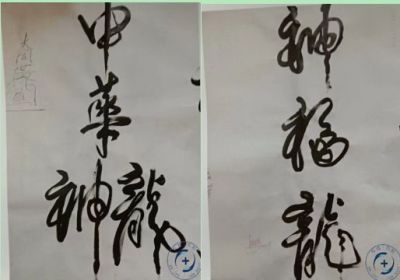 中華
神龍
神福龍